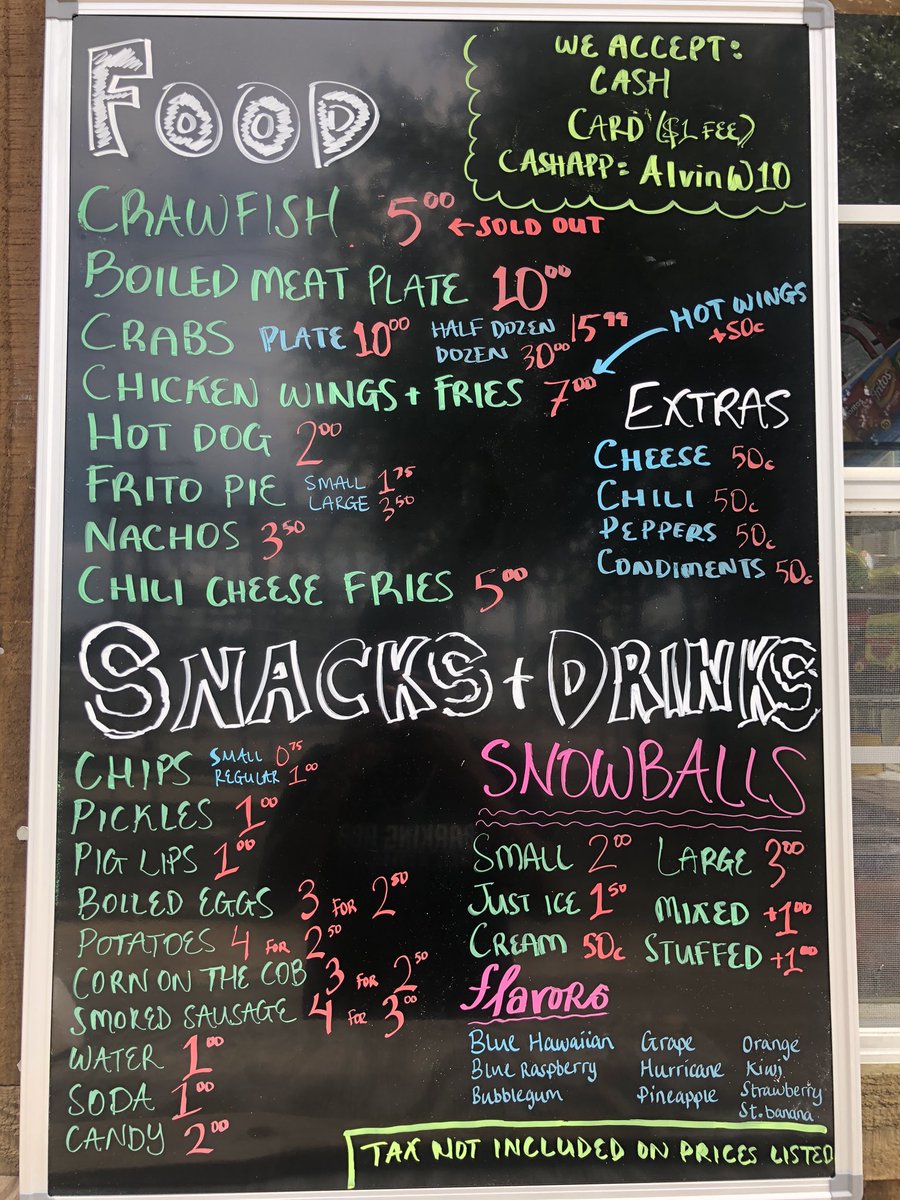 FOOD
WE ACCEPT:
CASH
CARD ($1 FEE)
CASHAPP: AlvinW10
CRAWFISH 5.00 ←SOLD OUT
BOILED MEAT PLATE 10.00
CRABS PLATE 10.00 HALF DOZEN 15.99
DOZEN 30.00
HOT WINGS
+50c
CHICKEN WINGS + FRIES 7.00
HOT DOG 2.00
FRITO PIE SMALL 1.75
LARGE 3.50
NACHOS 3.50
CHILI CHEESE FRIES 5.00
EXTRAS
CHEESE 50c
CHILI 50c
PEPPERS 50c
CONDIMENTS 50c
SNACKS + DRINKS
CHIPS SMALL 0.75
REGULAR 1.00
PICKLES 1.00
PIG LIPS 1.00
BOILED EGGS 3 FOR 2.50
POTATOES 4 FOR 2.50
CORN ON THE COB 3 FOR 2.50
SMOKED SAUSAGE 4 FOR 3.00
WATER 1.00
SODA 1.00
CANDY 2.00
SNOWBALLS
SMALL 2.00 LARGE 3.00
JUST ICE 1.50 MIXED +1.00
CREAM 50c STUFFED +1.00
flavors
Blue Hawaiian Grape Orange
Blue Raspberry Hurricane Kiwi
Bubblegum Pineapple Strawberry
St.banana
TAX NOT INCLUDED ON PRICES LISTED